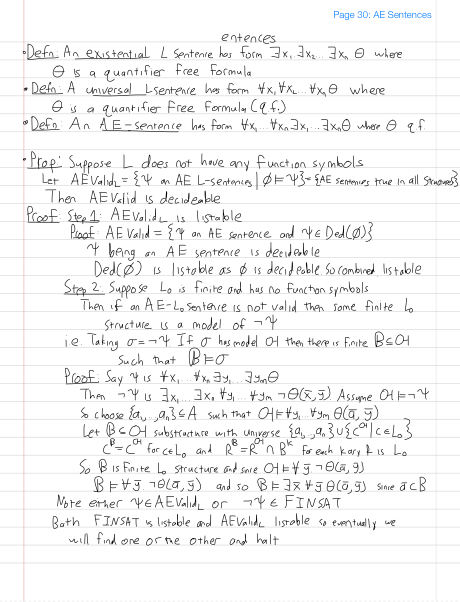 Page 30: AE Sentences
entences
• Defn: An existential L sentence has form ∃x₁ ∃x₂... ∃xₙ Θ where
Θ is a quantifier free formula
• Defn: A universal L sentence has form ∀x₁ ∀x₂... ∀xₙ Θ where
Θ is a quantifier free formula (q.f.)
• Defn: An AE-sentence has form ∀x₁...∀xₙ∃x₁...∃xₙΘ where Θ q.f.
• Prop: Suppose L does not have any function symbols
Let AEValid_L = {Ψ an AE L-sentences | ∅⊨Ψ} = {AE sentences true in all structures}
Then AEValid is decideable
Proof: Step 1: AEValid_L is listable
Proof: AEValid = {Ψ an AE sentence and Ψ∈Ded(∅)}
Ψ being an AE sentence is decideable
Ded(∅) is listable as ∅ is decideable so combined listable
Step 2: Suppose L₀ is finite and has no function symbols
Then if an AE-L₀ sentence is not valid then some finite L₀
structure is a model of ¬Ψ
i.e. Taking σ=¬Ψ If σ has model 𝔄 then there is finite 𝔅⊆𝔄
such that 𝔅⊨σ
Proof: Say Ψ is ∀x₁...∀xₙ ∃y₁...∃yₘΘ
Then ¬Ψ is ∃x₁...∃xₙ ∀y₁...∀yₘ ¬Θ(x̄,ȳ) Assume 𝔄⊨¬Ψ
So choose {a₁,...,aₙ}⊆A such that 𝔄⊨∀y₁...∀yₘ Θ(ā,ȳ)
Let 𝔅⊆𝔄 substructure with universe {a₁,...,aₙ}∪{c^𝔄 | c∈L₀}
c^𝔅=c^𝔄 for c∈L₀ and R^𝔅=R^𝔄∩B^k for each k ary R is L₀
So 𝔅 is finite L₀ structure and since 𝔄⊨∀ȳ ¬Θ(ā,ȳ)
𝔅⊨∀ȳ ¬Θ(ā,ȳ) and so 𝔅⊨∃x̄ ∀ȳ Θ(ā,ȳ) since ā⊂B
Note either Ψ∈AEValid_L or ¬Ψ∈FINSAT
Both FINSAT is listable and AEValid_L listable so eventually we
will find one or the other and halt